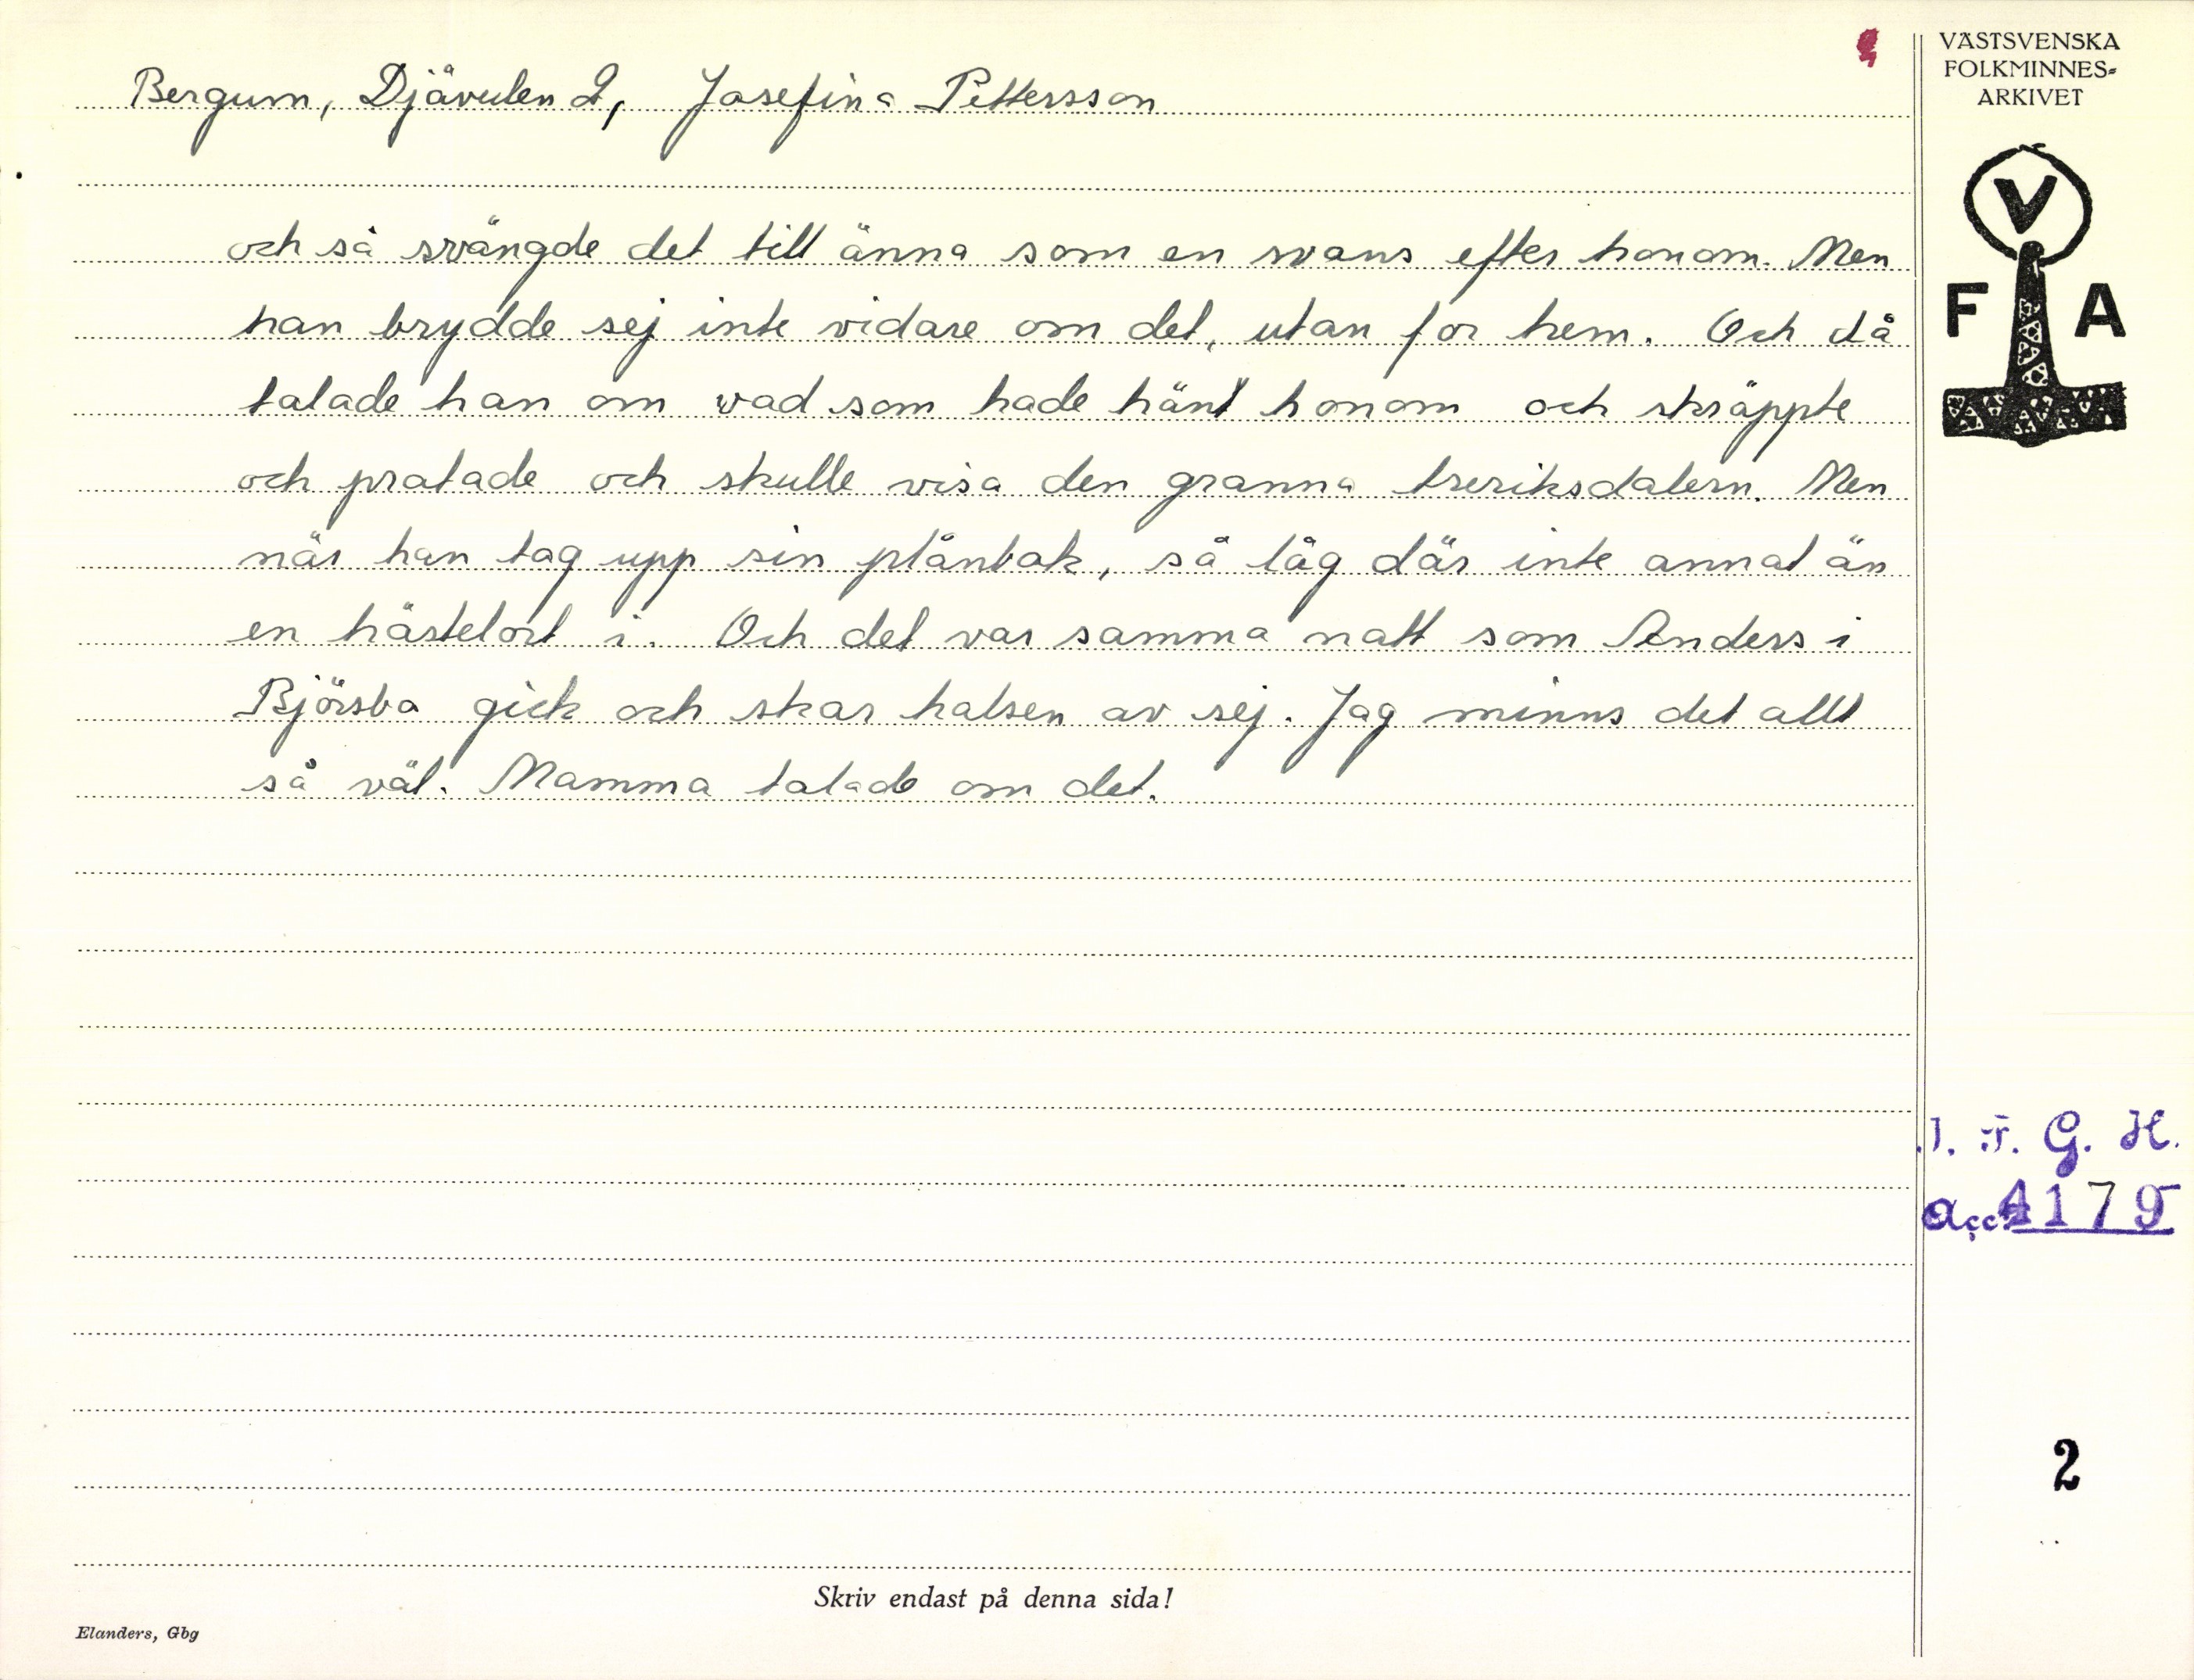 Bergum, Djävulen 2, Josefina Pettersson
och så svängde det till änna som en svans efter honom. Men
han brydde sej inte vidare om det, utan for hem. Och då
talade han om vad som hade hänt honom och skräppte
och pratade och skulle visa den granna treriksdalern. Men
när han tog upp sin plånbok, så låg där inte annat än
en hästelort i. Och det var samma natt som Anders i
Björsbo gick och skar halsen av sej. Jag minns det allt
så väl. Mamma talade om det.
Skriv endast på denna sida!
Elanders, Gbg
VÄSTSVENSKA
FOLKMINNES-
ARKIVET
V
F A
I. F. G. H.
acc. 4179
2